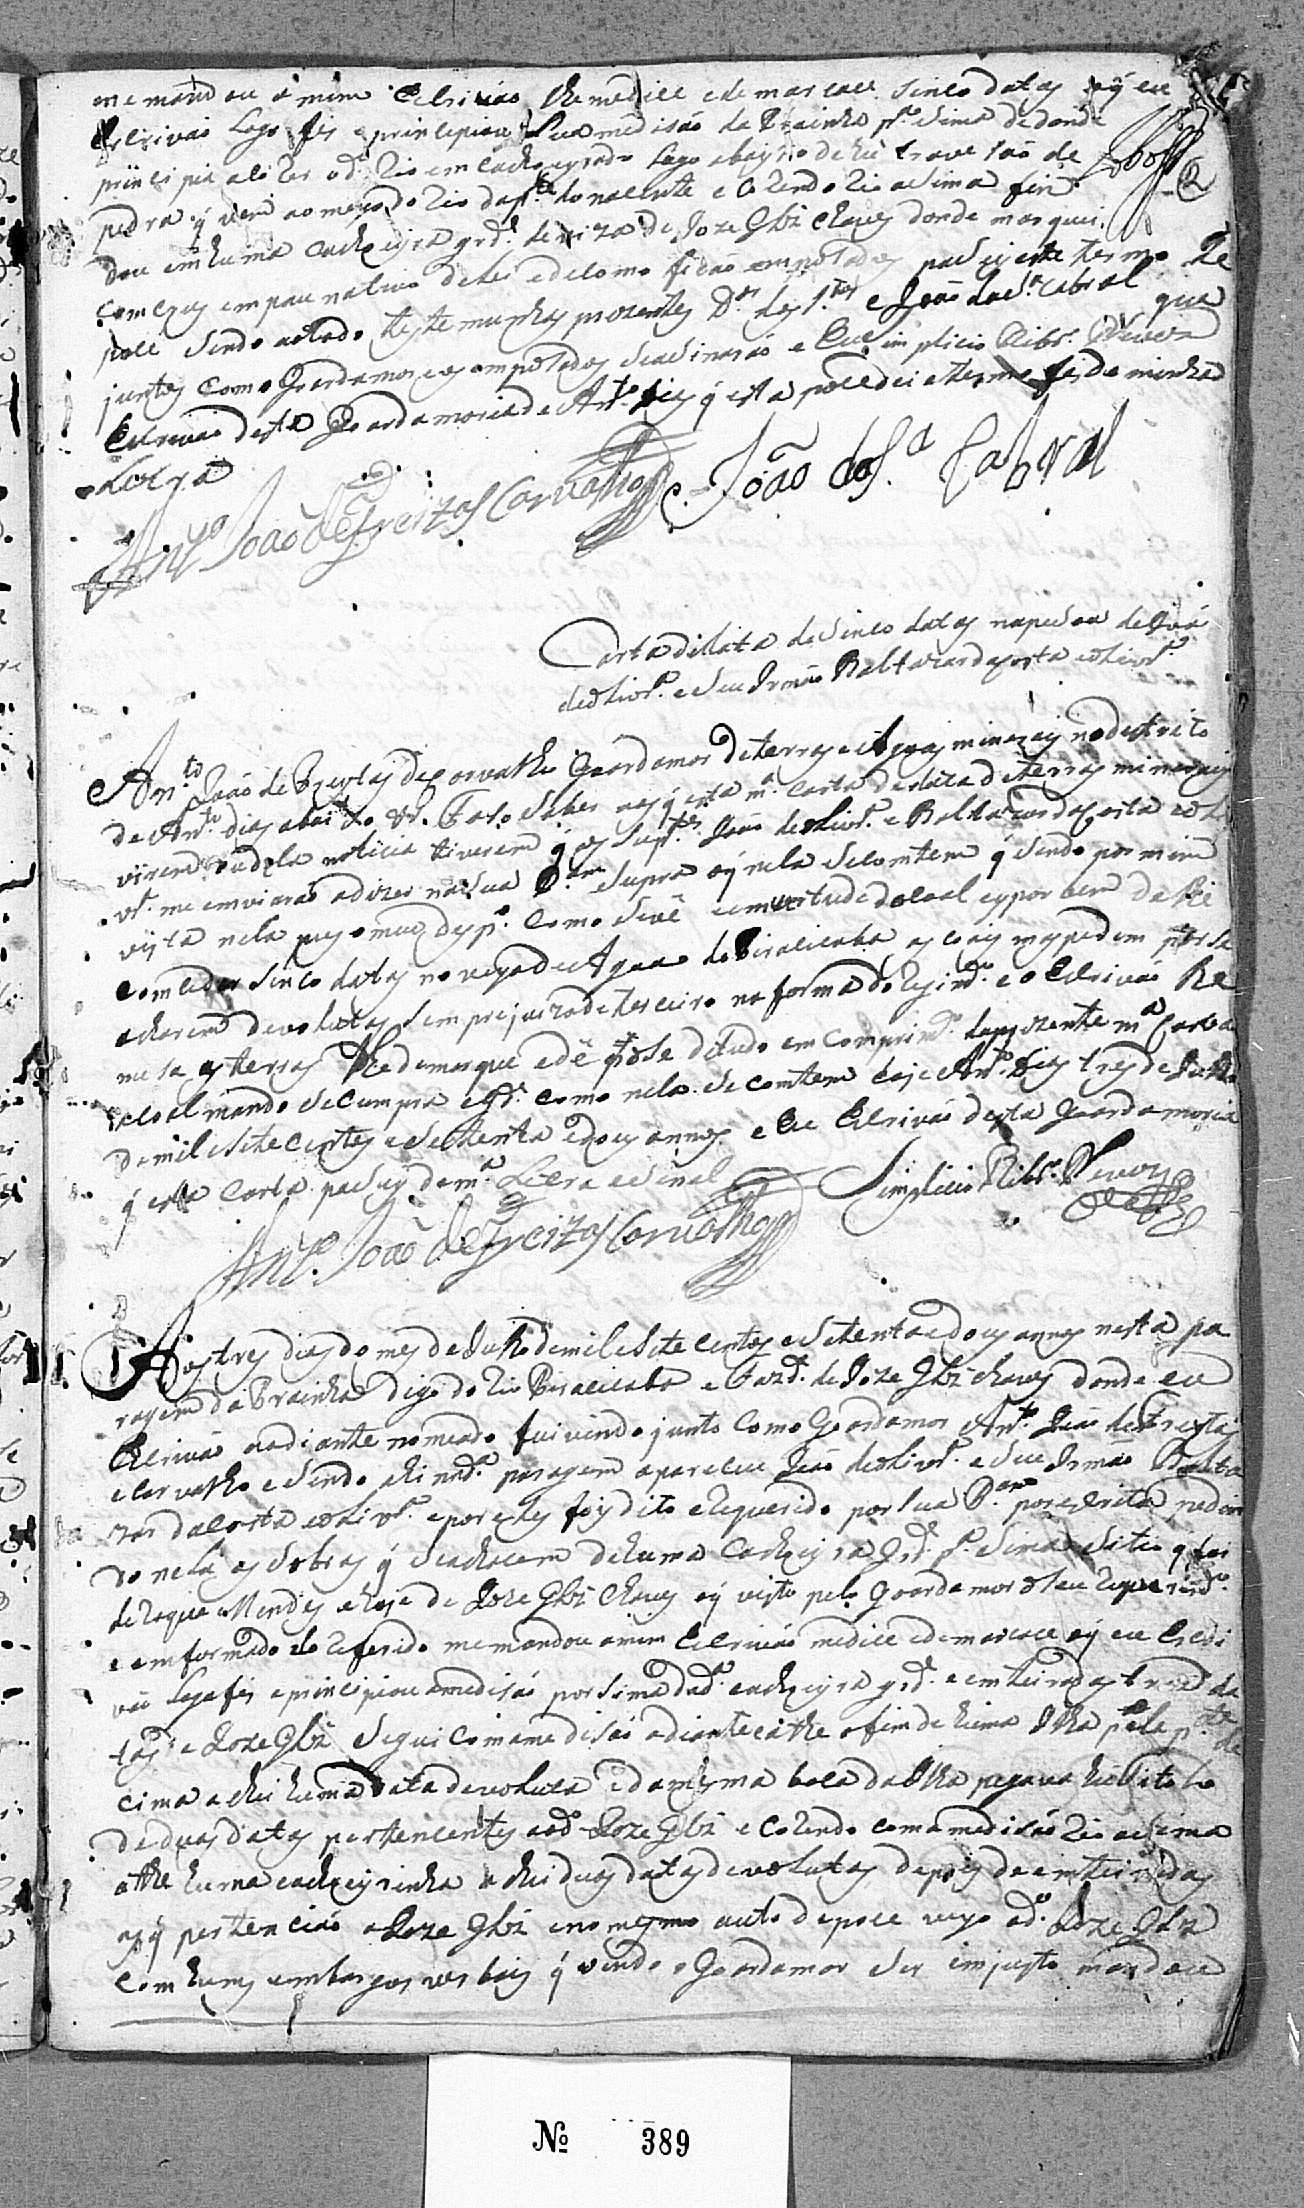 me mandou a mim Escrivaõ lhe medice e de marcace sinco datas oq̃ eu
Escrivaõ logo fis e principiou sua medisaõ da Prainha p.ª sima de donde
principia a liter od.º Rio em cachoeyrado logo abayxo de hũ travesaõ de
pedra q̃ vem ao meyo do Rio da p.te do nacente e corendo Rio asima fin
dou em huma cachoeyra gr.de de viza de Joze Glz Chaves donde marquei
comesos em pau nativo deles e de como ficaõ empoçados pasei este termo de
poce sendo a todo testemunhas prezentes e Joaõ da S.ª Cabral que
juntos com o Goardamor e os empoçados se asinaraõ e Eu Simplicio Ribr.º
Escrivaõ desta Goardamoria de Ant.º Dias q̃ esta poce dei e termo fes de minha
Letra
Ant.º Joaõ de Freitas Carvalho Joaõ da S.ª Cabral
Carta de data de sinco datas na pesoa de Joaõ
de oLivr.ª e seu Irmaõ Baltazar da Costa e oLivr.ª
Ant.º Joaõ de Freytas de Carvalho Goardamor de terras e Agoas mineraes no destrito
de Ant.º Dias abaixo &.ª Faso saber aos q̃ esta m.ª Carta de data de terras mineraes
virem ou dela noticia tiverem q̃ os Sup.tes Joaõ de oLivr.ª e Baltazar da Costa e oLi
vr.ª me enviaraõ a dizer na sua P.am supra oq̃ nela se comtem q̃ sendo por mim
vista nela pus o meu desp.º como se vê e em vertude do coal ey por bem de lhe
comceder sinco datas no veyo de Agua do Piracicaba as coais mepedem por se
acharem devolutas sem prejuizo de terceiro na forma do Regim.º e o Escrivaõ
mesa as terras lhe demarque e dê pose de tudo em comprim.º da prezente m.ª Carta
a coal mando se cumpra e g.de como nela se comtem oje Ant.º Dias tres de Julho
de mil e sete centos e setenta e dous annos e Eu Escrivaõ desta Goardamoria
q̃ esta Carta pasey de m.ª Letra e sinal Simplicio Ribr.º
Ant.º Joaõ de Freitas Carvalho
Aos tres dias do mes de Julho de mil e sete centos e setenta e dous annos nesta pa
ragem da Prainha digo do Rio Piracicaba e Fazd.ª de Joze Glz Chaves donde eu
Escrivaõ ao diante nomeado fui vindo junto com o Goardamor Ant.º Joaõ de Freytas
e Carvalho e sendo ahi na d.ª paragem apareceu Joaõ de oLivr.ª e seu Irmaõ Balta
zar da Costa e oLivr.ª e por eles foy dito e Requerido por sua P.am por escrita pedin
do nela as sobras q̃ se achacem de huma Cachoeyra gr.de p.ª sima sitio q̃ foi
de Roque Mendes e hoje de Joze Glz Chaves oq̃ visto pelo Goardamor o seu Requerim.to
e emformado do Referido me mandou a mim Escrivaõ medice e demarcace oq̃ eu Escri
vaõ logo fis e principiou a medisaõ por sima da d.ª cachoeyra gr.de e emteirado as tres da
tas a Joze Glz segui com a medisaõ adiante athe o fim de huma Ilha pela p.te de
cima achei huma data devoluta e da mesma boca da Ilha pegava hũ titolo
de duas datas pertencentes ao d.º Joze Glz e corendo com a medisaõ Rio asima
athe huma cachoeyrinha achei duas datas devolutas depois de emteiradas
as q̃ pertenciaõ a Joze Glz e no mesmo auto de poce veyo o d.º Joze Glz
com huns embargos verbais q̃ vendo o Goardamor ser imjusto mandou
Nº 389